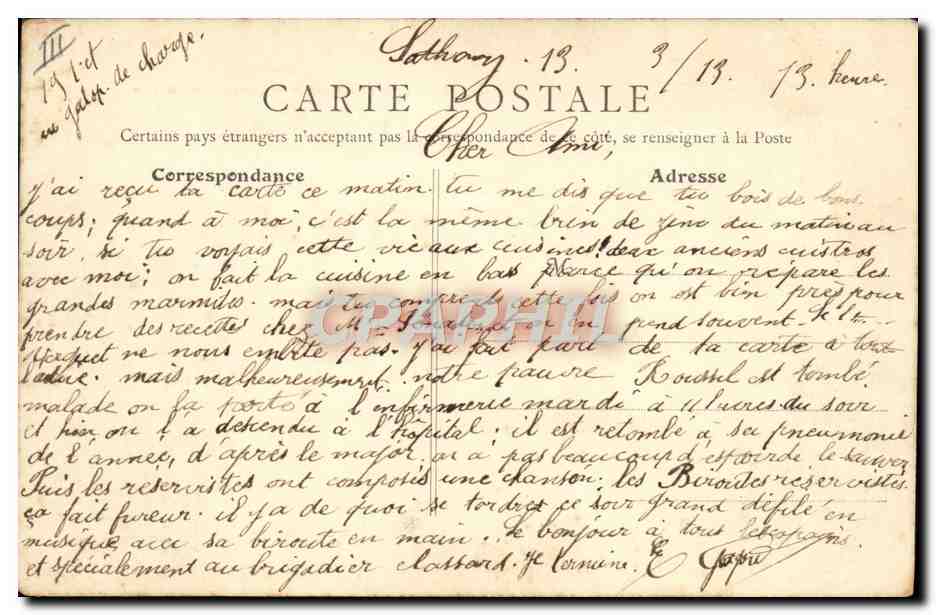 III
1913 et
galop. de charge.
Sathonay. 13. 3/13. 13. heure.
CARTE POSTALE
Certains pays étrangers n'acceptant pas la correspondance de ce côté, se renseigner à la Poste
Cher Ami,
Correspondance
Adresse
J'ai reçu ta carte ce matin. tu me dis que tu bois de bons
coups; quand à moi, c'est la même brin de zinc du matin au
soir, si tu voyais cette vie aux cuisines! deux anciens cuistros
avec moi; on fait la cuisine en bas parce qu'on repare les
grandes marmites. mais tu comprends cette fois on est bin près pour
prendre des recettes chez M on en prend souvent. le Lt
ne nous embête pas. j'ai fait part de ta carte à tout
mais malheureusement. notre pauvre Roussel est tombé
malade on l'a porté à l'infirmerie mardi à 11 heures du soir
et hier on l'a descendu à l'hôpital; il est retombé à sa pneumonie
de l'année, d'après le major. on a pas beaucoup d'espoir de le sauver
Puis les réservistes ont composés une chanson. les Biroutes réservistes
ça fait fureur. il y a de quoi se tordre, ce soir grand défilé en
musique avec sa biroute en main. le bonjour à tous les copains.
et spécialement au brigadier classard. Je termine. E
CPAPHIL